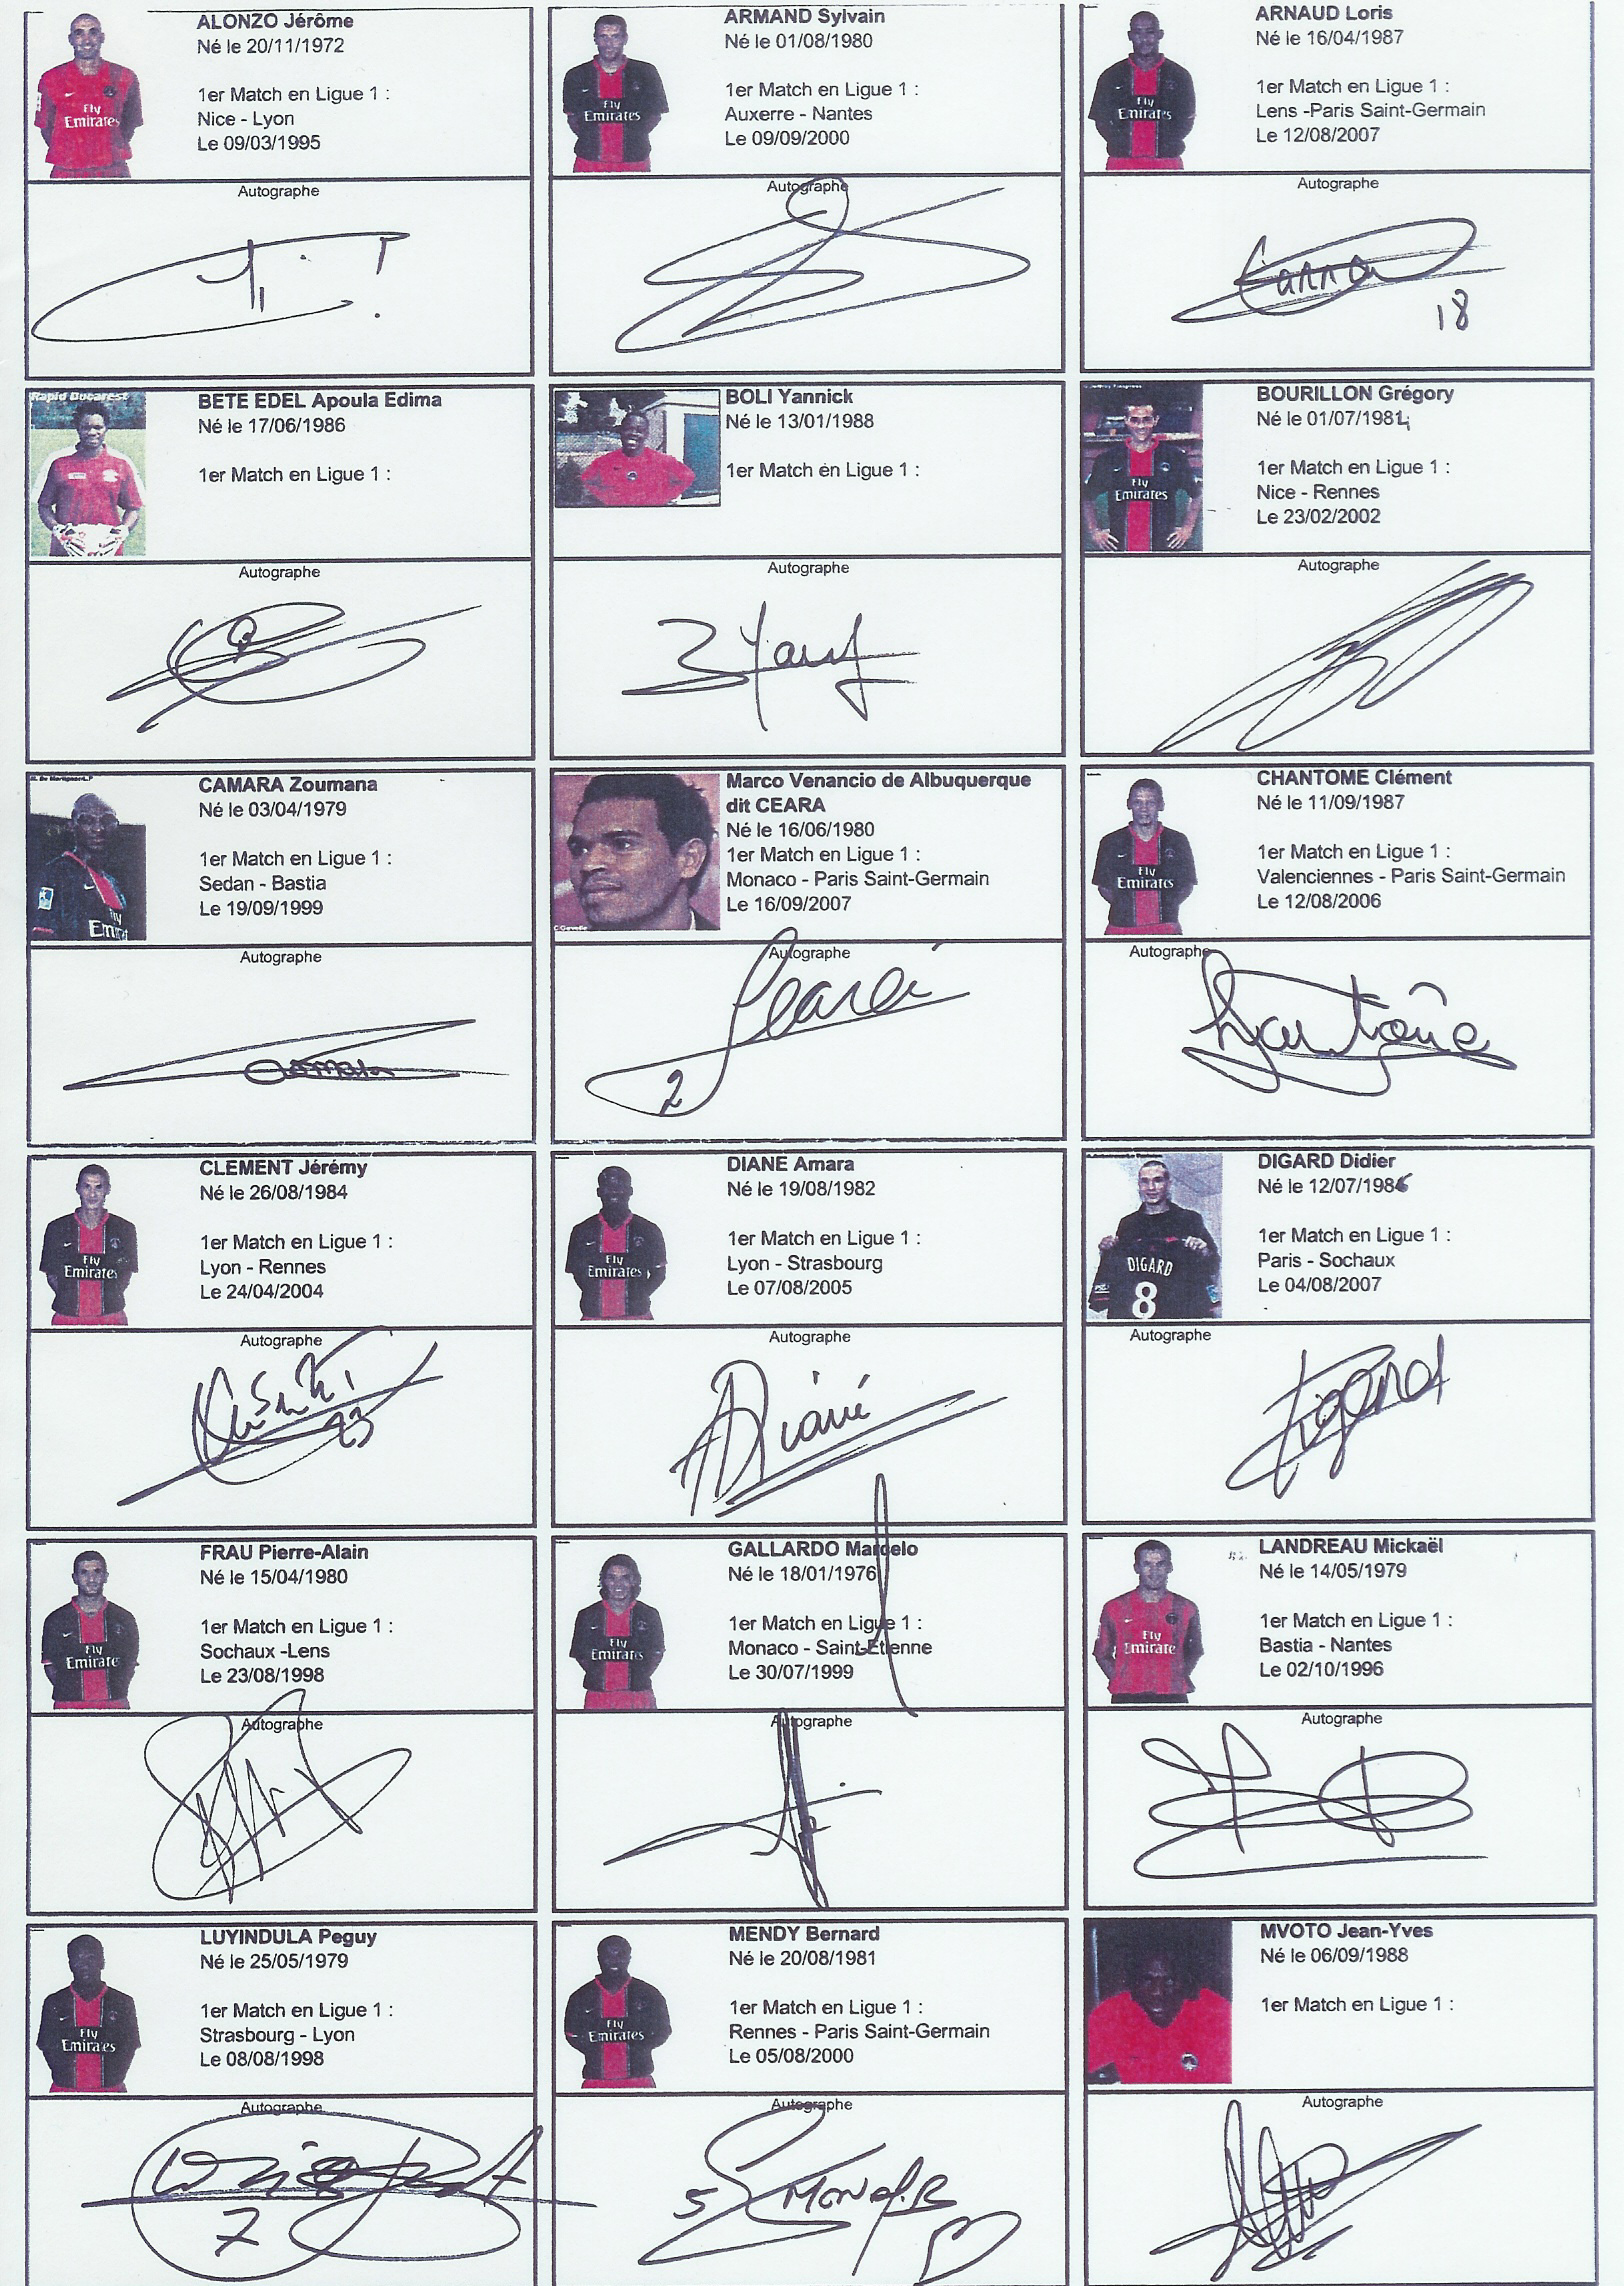 ALONZO Jérôme
Né le 20/11/1972
1er Match en Ligue 1 :
Nice - Lyon
Le 09/03/1995
Fly
Emirates
Autographe
ARMAND Sylvain
Né le 01/08/1980
1er Match en Ligue 1 :
Auxerre - Nantes
Le 09/09/2000
Fly
Emirates
Autographe
ARNAUD Loris
Né le 16/04/1987
1er Match en Ligue 1 :
Lens -Paris Saint-Germain
Le 12/08/2007
Fly
Emirates
Autographe
18
Rapid Bucarest
BETE EDEL Apoula Edima
Né le 17/06/1986
1er Match en Ligue 1 :
Autographe
BOLI Yannick
Né le 13/01/1988
1er Match en Ligue 1 :
Autographe
BOURILLON Grégory
Né le 01/07/1984
1er Match en Ligue 1 :
Nice - Rennes
Le 23/02/2002
Fly
Emirates
Autographe
CAMARA Zoumana
Né le 03/04/1979
1er Match en Ligue 1 :
Sedan - Bastia
Le 19/09/1999
Fly
Emirat
Autographe
Marco Venancio de Albuquerque
dit CEARA
Né le 16/06/1980
1er Match en Ligue 1 :
Monaco - Paris Saint-Germain
Le 16/09/2007
Autographe
Ceará
2
CHANTOME Clément
Né le 11/09/1987
1er Match en Ligue 1 :
Valenciennes - Paris Saint-Germain
Le 12/08/2006
Fly
Emirates
Autographe
Chantôme
CLEMENT Jérémy
Né le 26/08/1984
1er Match en Ligue 1 :
Lyon - Rennes
Le 24/04/2004
Fly
Emirates
Autographe
23
DIANE Amara
Né le 19/08/1982
1er Match en Ligue 1 :
Lyon - Strasbourg
Le 07/08/2005
Fly
Emirates
Autographe
A Diané
DIGARD Didier
Né le 12/07/1986
1er Match en Ligue 1 :
Paris - Sochaux
Le 04/08/2007
DIGARD
8
Autographe
Digard
FRAU Pierre-Alain
Né le 15/04/1980
1er Match en Ligue 1 :
Sochaux -Lens
Le 23/08/1998
Fly
Emirate
Autographe
GALLARDO Marcelo
Né le 18/01/1976
1er Match en Ligue 1 :
Monaco - Saint-Etienne
Le 30/07/1999
Fly
Emirates
Autographe
LANDREAU Mickaël
Né le 14/05/1979
1er Match en Ligue 1 :
Bastia - Nantes
Le 02/10/1996
Fly
Emirate
Autographe
LUYINDULA Peguy
Né le 25/05/1979
1er Match en Ligue 1 :
Strasbourg - Lyon
Le 08/08/1998
Fly
Emirates
Autographe
7
MENDY Bernard
Né le 20/08/1981
1er Match en Ligue 1 :
Rennes - Paris Saint-Germain
Le 05/08/2000
Fly
Emirates
Autographe
5
MVOTO Jean-Yves
Né le 06/09/1988
1er Match en Ligue 1 :
Autographe